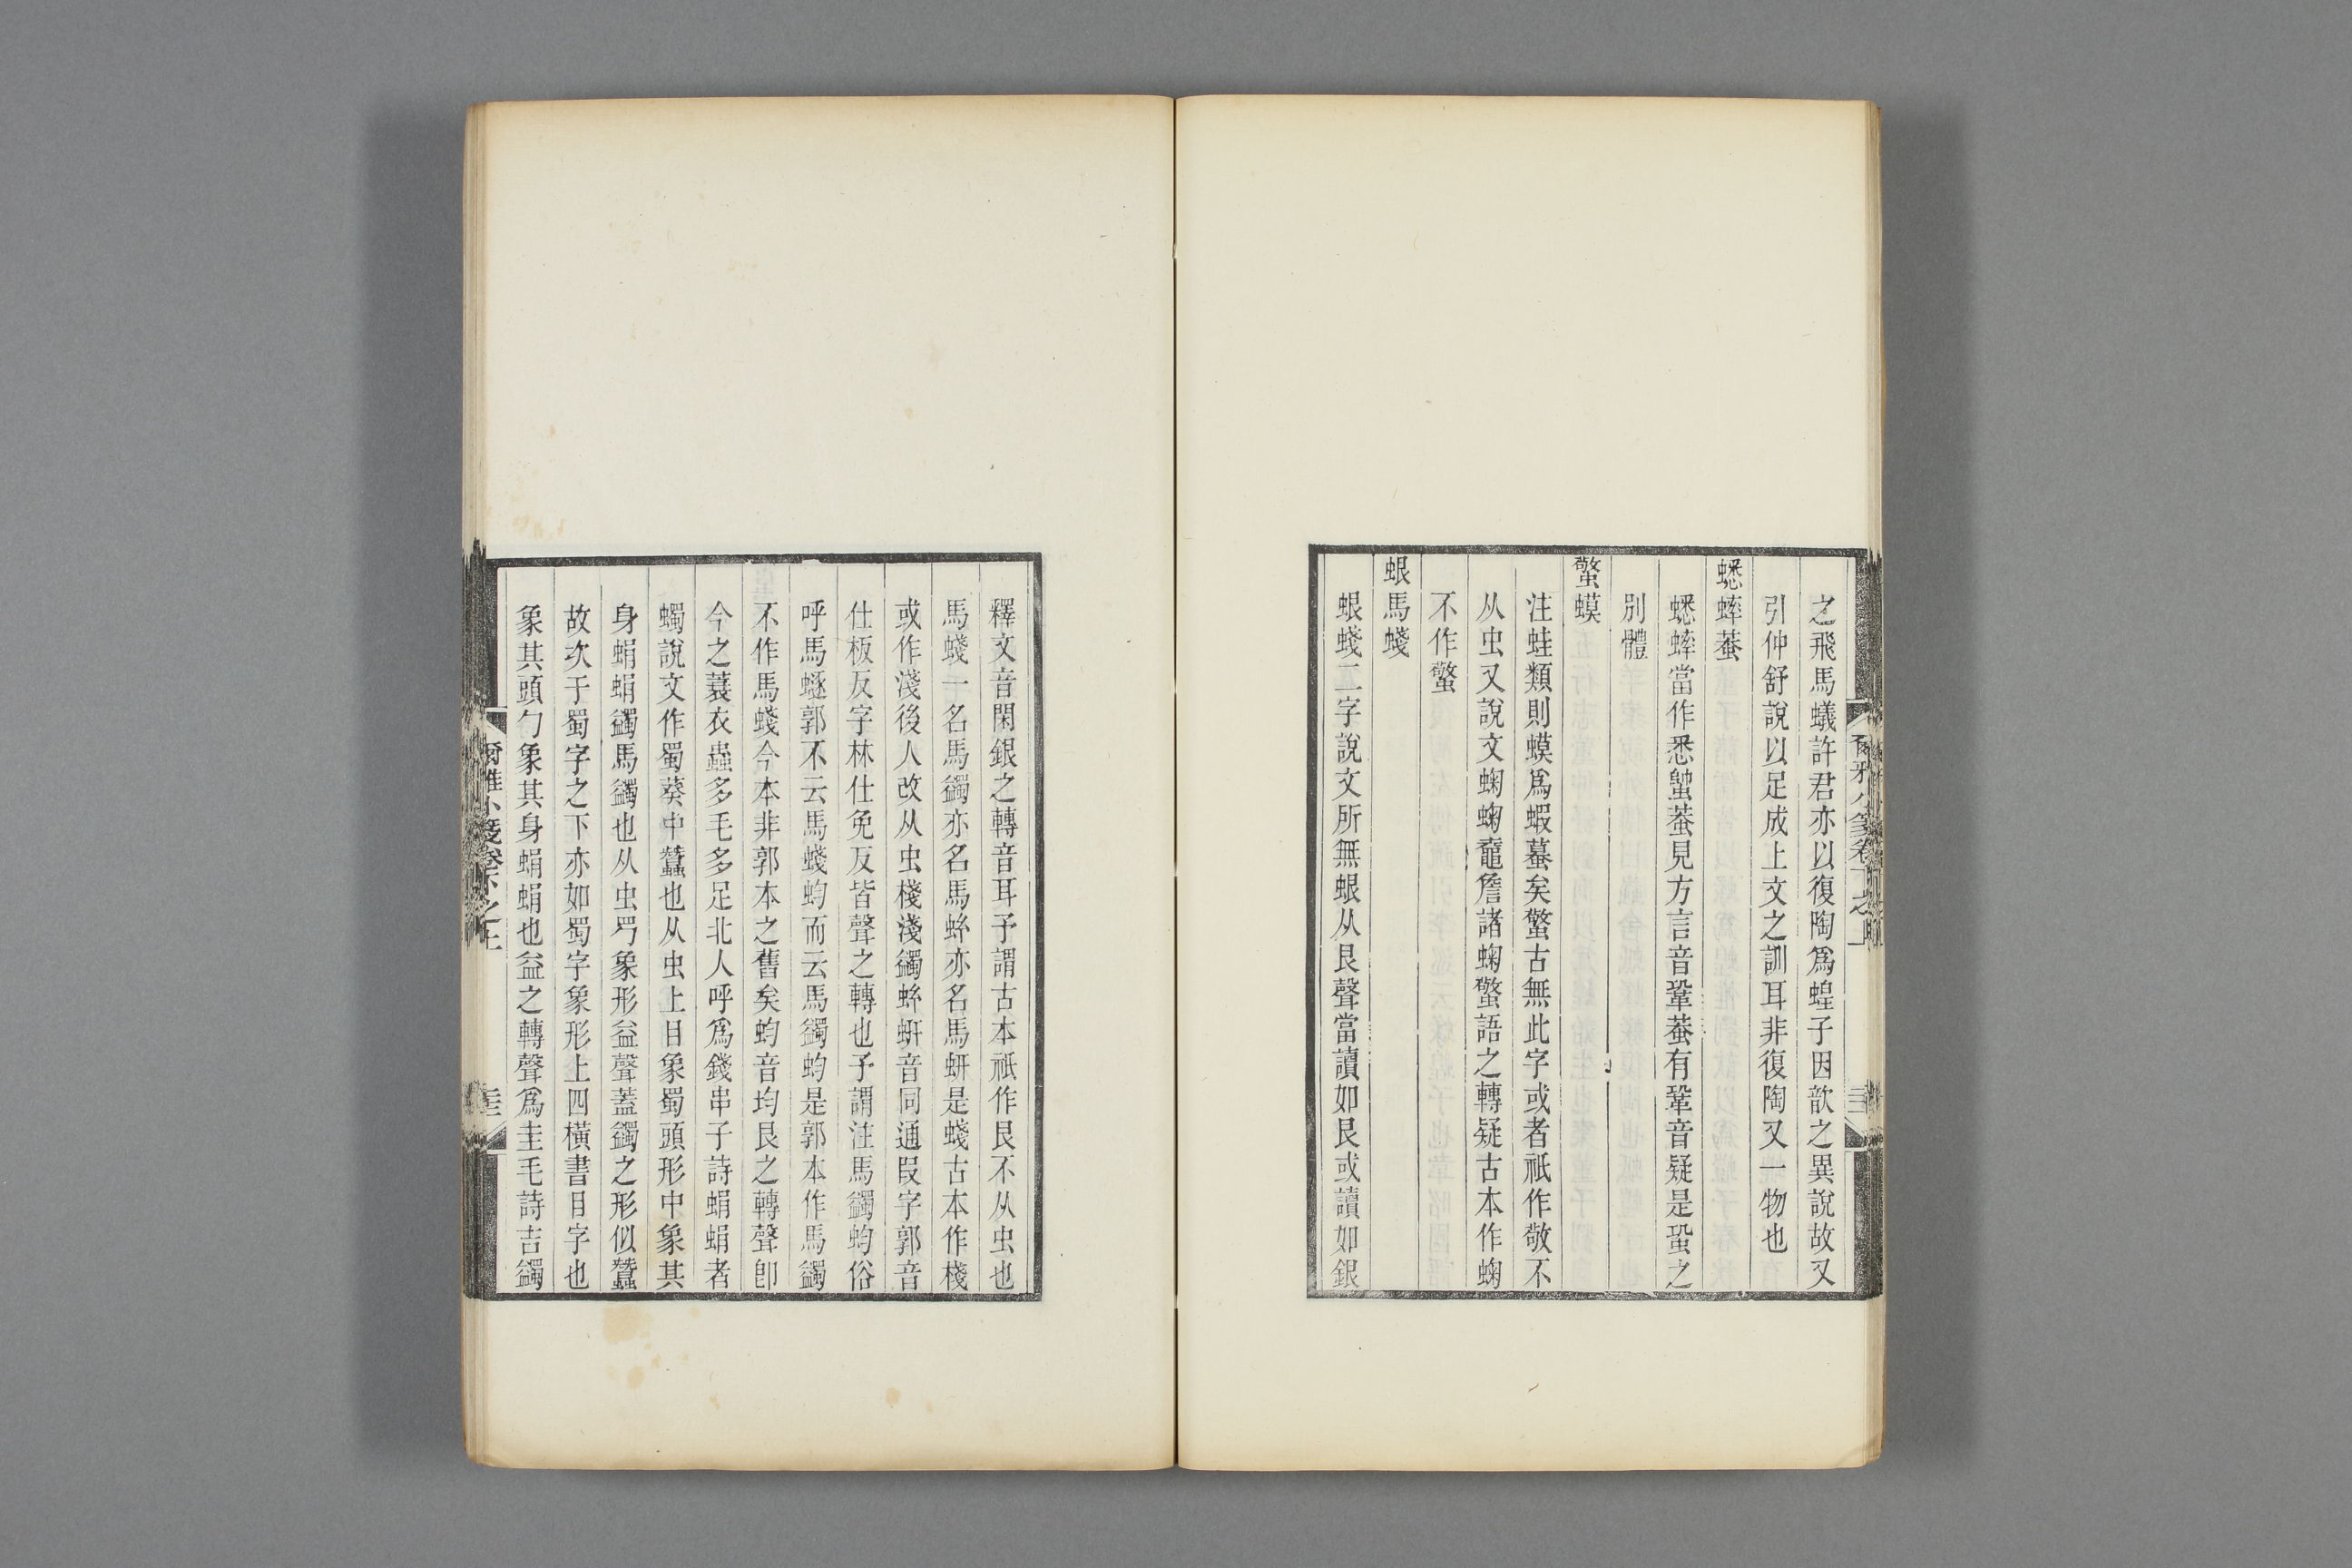 之飛馬蟻許君亦以復陶爲蝗子因歆之異說故又
引仲舒說以足成上文之訓耳非復陶又一物也
蟋蟀蛬
蟋蟀當作悉䗻蛬見方言音鞏蛬有鞏音疑是蛩之
別體
蟼蟆
注蛙類則蟆爲蝦蟇矣蟼古無此字或者祇作敬不
从虫又說文蜠蜠鼀詹諸蜠蟼語之轉疑古本作蜠
不作蟼
蛝馬蝬
蛝蝬二字說文所無蛝从艮聲當讀如艮或讀如銀
釋文音閑銀之轉音耳予謂古本祇作艮不从虫也
馬蝬一名馬蠲亦名馬蚿亦名馬蚈是蝬古本作棧
或作淺後人改从虫棧淺蠲蚿蚈音同通叚字郭音
仕板反字林仕免反皆聲之轉也予謂注馬蠲蚐俗
呼馬䗯郭不云馬蝬蚐而云馬蠲蚐是郭本作馬蠲
不作馬蝬今本非郭本之舊矣蚐音均艮之轉聲卽
今之蓑衣蟲多毛多足北人呼爲錢串子詩蜎蜎者
蠋說文作蜀葵中蠶也从虫上目象蜀頭形中象其
身蜎蜎蠲馬蠲也从虫𠃬象形益聲蓋蠲之形似蠶
故次于蜀字之下亦如蜀字象形上四橫書目字也
象其頭勹象其身蜎蜎也益之轉聲爲圭毛詩吉蠲
爾雅小箋卷下之上